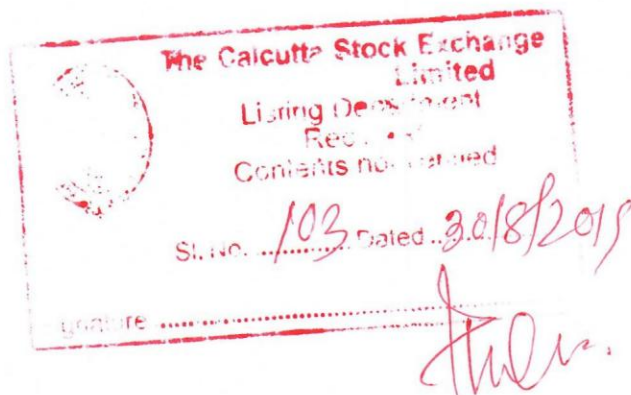 The Calcutta Stock Exchange
Limited
Listing Department
Contents not
Sl. No. 103 Dated 30/8/2019
Signature